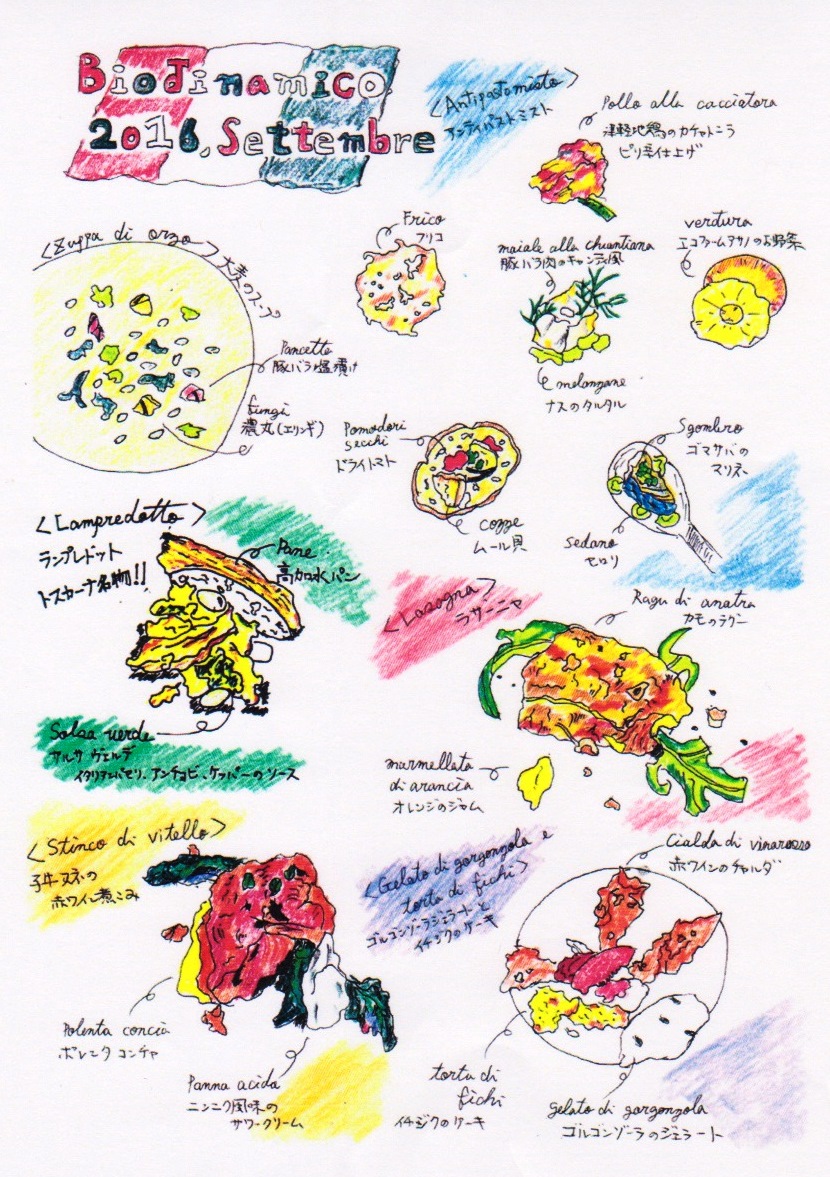 BioDinamico
2016. Settembre
<Antipastomisto>
アンティパストミスト
Pollo alla cacciatora
津軽地鶏のカチャトーラ
ピリ辛仕上げ
Frico
フリコ
maiale alla chiantiana
豚バラ肉のキャンティ風
melanzane
ナスのタルタル
verdura
エコファームアサノのお野菜
<Zuppa di orzo>
大麦のスープ
Pancetta
豚バラ塩漬け
fungi
濃丸(エリンギ)
Pomodori
secchi
ドライトマト
cozze
ムール貝
Sgombro
ゴマサバの
マリネ
Sedano
セロリ
<Lampredotto>
ランプレドット
トスカーナ名物!!
Pane
高加水パン
Salsa verde
サルサ ヴェルデ
イタリアンパセリ、アンチョビ、ケッパーのソース
<Lasagna>
ラザーニャ
Ragu di anatra
カモのラグー
marmellata
di arancia
オレンジのジャム
<Stinco di vitello>
子牛スネの
赤ワイン煮こみ
Polenta concia
ポレンタ コンチャ
Panna acida
ニンニク風味の
サワークリーム
<Gelato di gorgonzola e
torta di fichi>
ゴルゴンゾーラジェラートと
イチジクのケーキ
Cialda di vinorosso
赤ワインのチャルダ
torta di
fichi
イチジクのケーキ
gelato di gorgonzola
ゴルゴンゾーラのジェラート